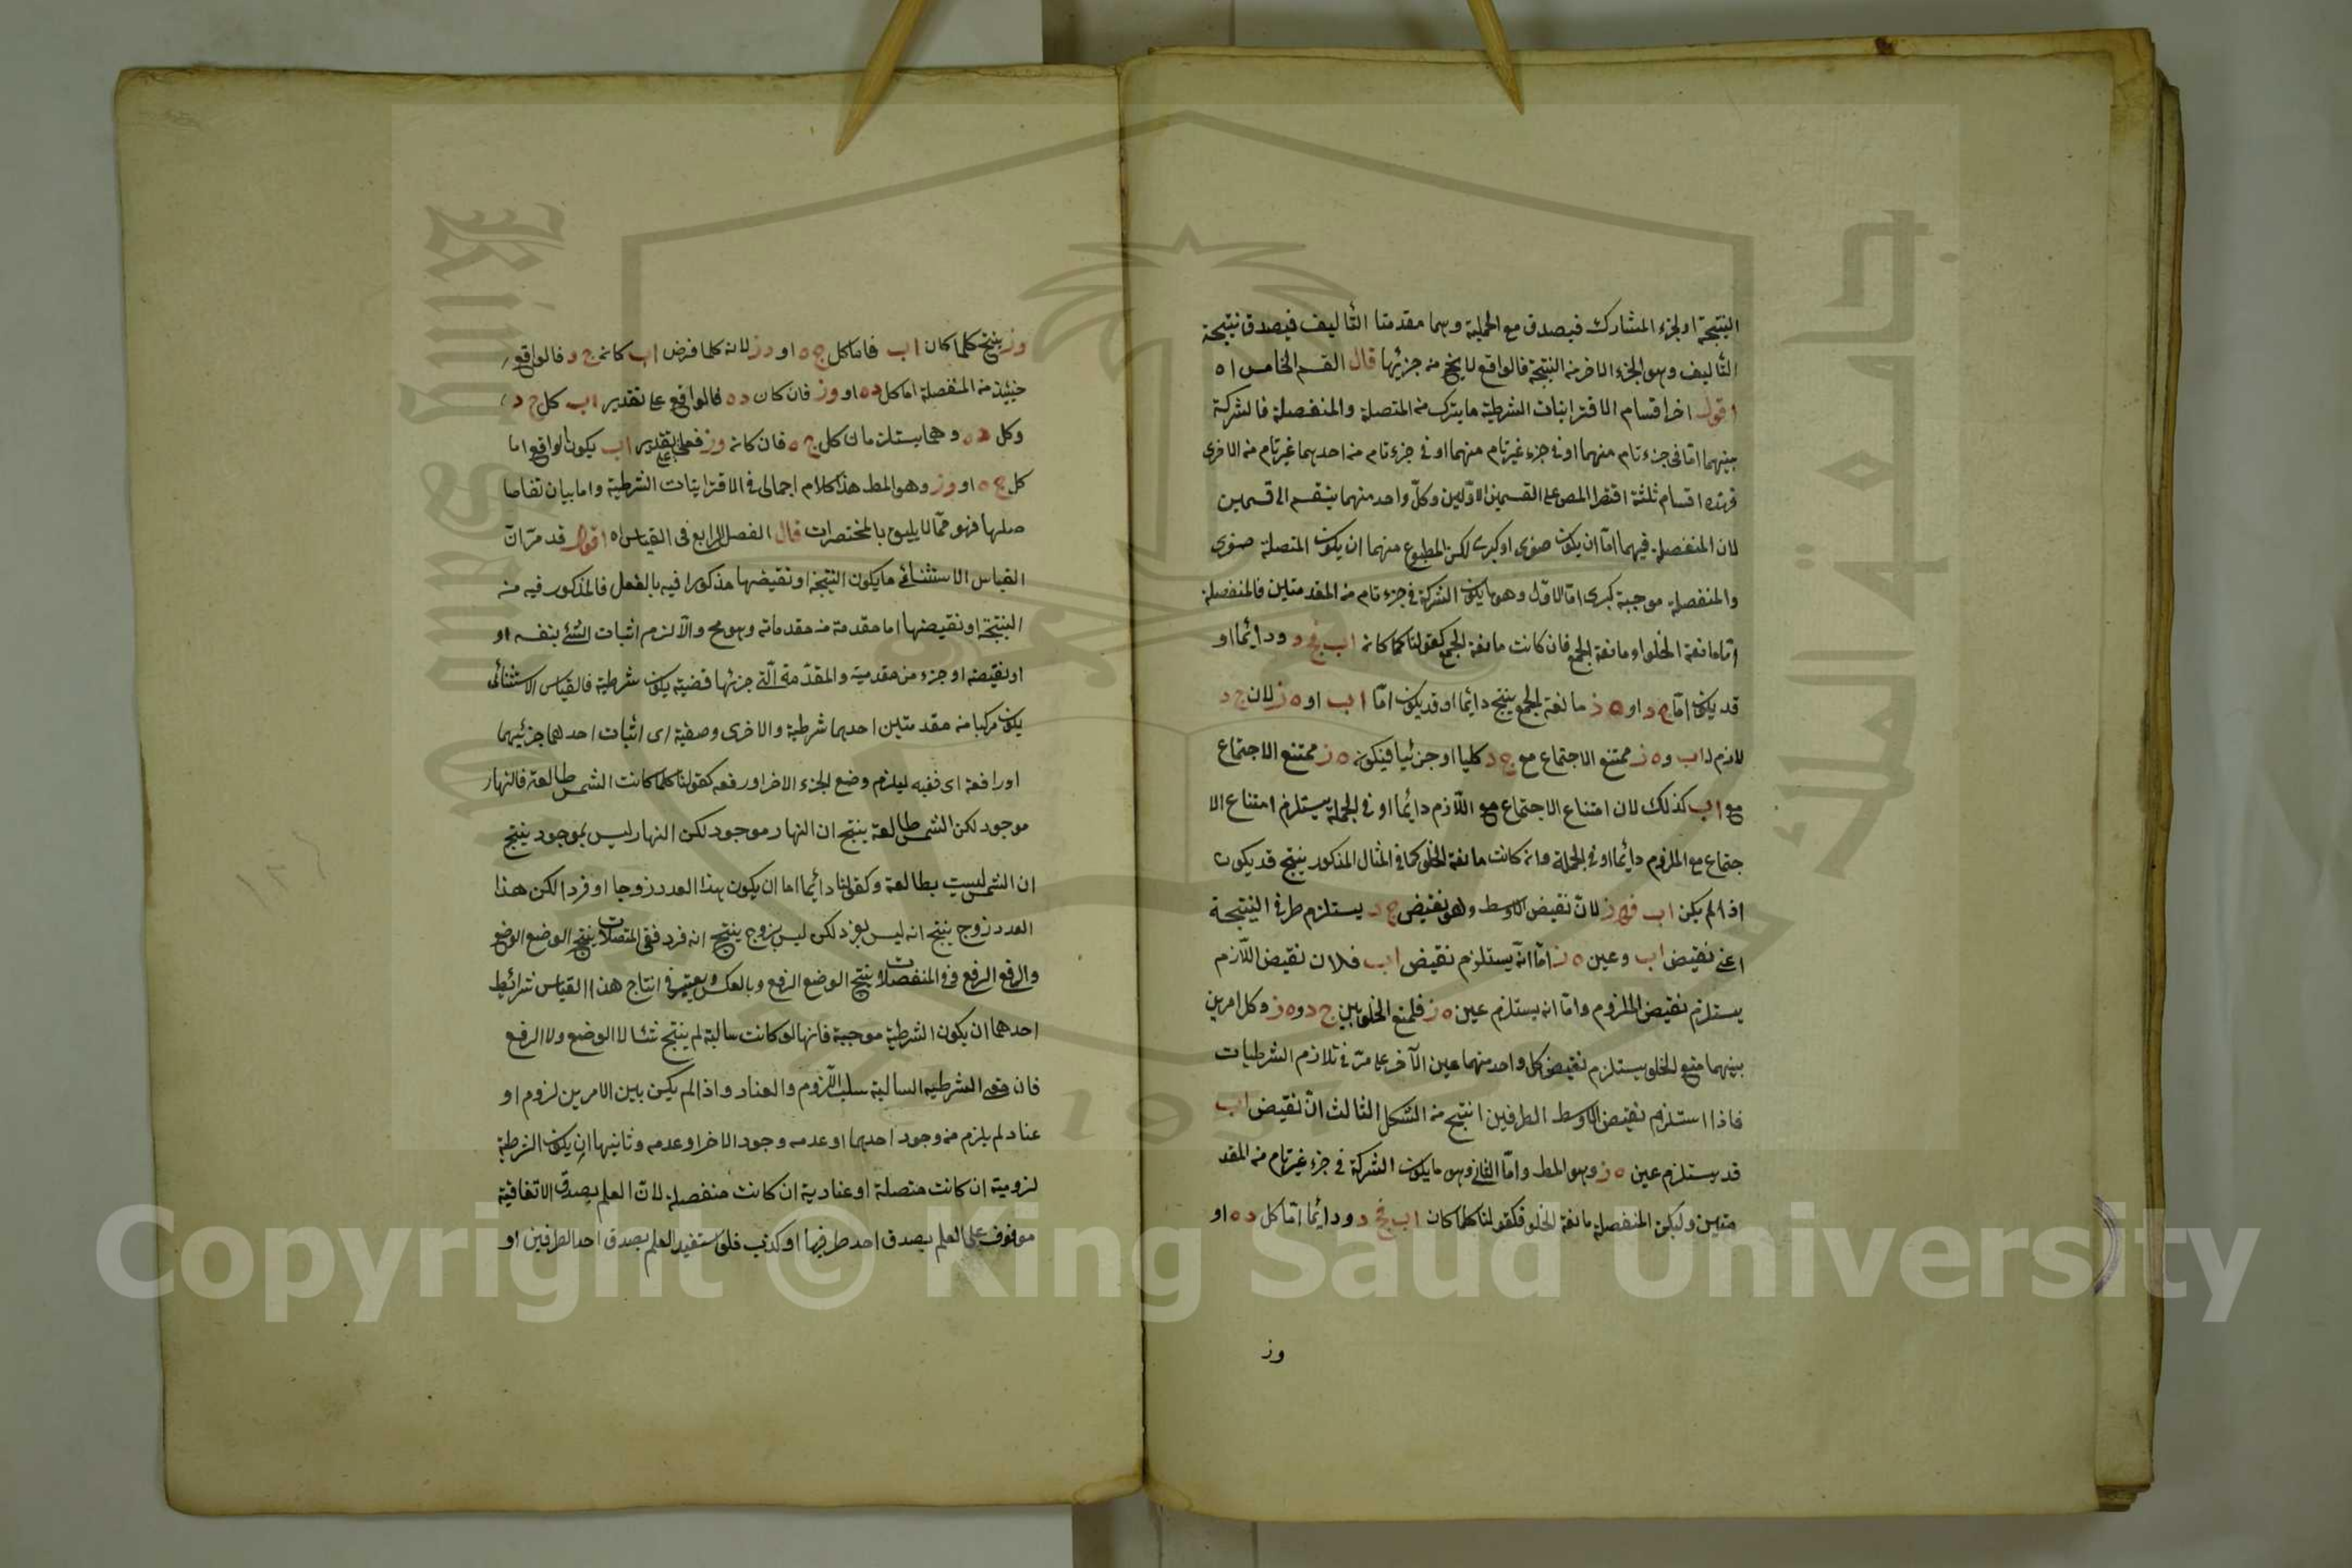 النتيجة او الجزء المشارك فيصدق مع الحملية وهما مقدمتا التأليف فيصدق نتيجة
التأليف وهو الجزء الاخر من النتيجة فالواقع لا يخ من جزئيها قال القسم الخامس اه
اقول اخر اقسام الاقترانيات الشرطية ما يتركب من المتصلة والمنفصلة فالشركة
بينهما امّا فى جزء تام منهما او فى جزء غير تام منهما او فى جزء تام من احدهما غير تام من الاخرى
فهذه اقسام ثلثة اقتصر المص على القسمين الاوّلين وكلّ واحد منهما ينقسم الى قسمين
لان المنفصلة فيهما امّا ان يكون صغرى او كبرى لكن المطبوع منهما ان يكون المتصلة صغرى
والمنفصلة موجبة كبرى امّا الاوّل وهو ما يكون الشركة فى جزء تام من المقدمتين فالمنفصلة
امّا مانعة الخلو او مانعة الجمع فان كانت مانعة الجمع كقولنا كلما كان اب فج د ودائما او
قد يكون امّا ج د او ه ز مانعة الجمع ينتج دائما او قد يكون امّا اب او ه ز لان ج د
لازم لـ اب و ه ز ممتنع الاجتماع مع ج د كليا او جزئيا فيكون ه ز ممتنع الاجتماع
مع اب كذلك لان امتناع الاجتماع مع اللّازم دائما او فى الجملة يستلزم امتناع الا
جتماع مع الملزوم دائما او فى الجملة وان كانت مانعة الخلو كما فى المثال المذكور ينتج قد يكون
اذا لم يكن اب فه ز لانّ نقيض الاوسط وهو نقيض ج د يستلزم طرفى النتيجة
اعنى نقيض اب وعين ه ز امّا انّه يستلزم نقيض اب فلان نقيض اللّازم
يستلزم نقيض الملزوم وامّا انه يستلزم عين ه ز فلمنع الخلو بين ج د و ه ز وكل امرين
بينهما منع الخلو يستلزم نقيض كل واحد منهما عين الآخر على ما مرّ فى تلازم الشرطيات
فاذا استلزم نقيض الاوسط الطرفين انتج من الشكل الثالث انّ نقيض اب
قد يستلزم عين ه ز وهو المط وامّا الثانى وهو ما يكون الشركة فى جزء غير تام من المقد
متين وليكن المنفصلة مانعة الخلو فكقولنا كلما كان اب فج د ودائما امّا كل د ه او
وز
وز ينتج كلما كان اب فاما كل ج ه او د ز لانه كلما فرض اب كان ج د فالواقع
حينئذ من المنفصلة اما كل د ه او وز فان كان د ه فالواقع على تقدير اب كل ج د
وكل د ه وهما يستلزمان كل ج ه فان كان وز فعلى تقدير اب يكون الواقع اما
كل ج ه او وز وهو المط هذا كلام اجمالى فى الاقترانيات الشرطية واما بيان تفاصا
صلها فهو ممّا لا يليق بالمختصرات قال الفصل الرابع فى القياس اه اقول قد مرّ انّ
القياس الاستثنائى ما يكون النتيجة او نقيضها مذكورا فيه بالفعل فالمذكور فيه من
النتيجة او نقيضها اما مقدمة من مقدماته وهو مح والّا لزم اثبات الشئ بنفسه او
او نقيضه او جزء من مقدميه والمقدّمة الّتى جزئها قضية يكون شرطية فالقياس الاستثنائى
يكون مركبا من مقدمتين احدهما شرطية والاخرى وضعية اى اثبات احدهما جزئيهما
او رافعة اى نفيه ليلزم وضع الجزء الاخر او رفعه كقولنا كلما كانت الشمس طالعة فالنهار
موجود لكن الشمس طالعة ينتج ان النهار موجود لكن النهار ليس بموجود ينتج
ان الشمس ليست بطالعة وكقولنا دائما اما ان يكون هذا العدد زوجا او فردا لكن هذا
العدد زوج ينتج انه ليس بفرد لكن ليس بزوج ينتج انه فرد ففى المتصلات ينتج الوضع الوضع
والرفع الرفع وفى المنفصلات ينتج الوضع الرفع وبالعكس ويعتبر فى انتاج هذا القياس شرائط
احدهما ان يكون الشرطية موجبة فانها لو كانت سالبة لم ينتج شئا لا الوضع ولا الرفع
فان معنى الشرطية السالبة سلب اللّزوم والعناد واذا لم يكن بين الامرين لزوم او
عناد لم يلزم من وجود احدهما او عدمه وجود الاخر او عدمه وثانيها ان يكون الشرطية
لزومية ان كانت متصلة او عنادية ان كانت منفصلة لانّ العلم بصدق الاتفاقية
موقوف على العلم بصدق احد طرفيها او كذب فلو استفيد العلم بصدق احد الطرفين او
Copyright © King Saud University